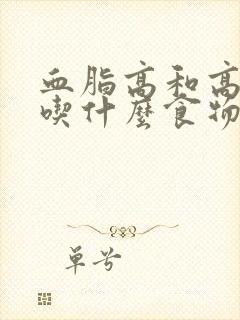 血脂高和高
喫什麼食物
單号